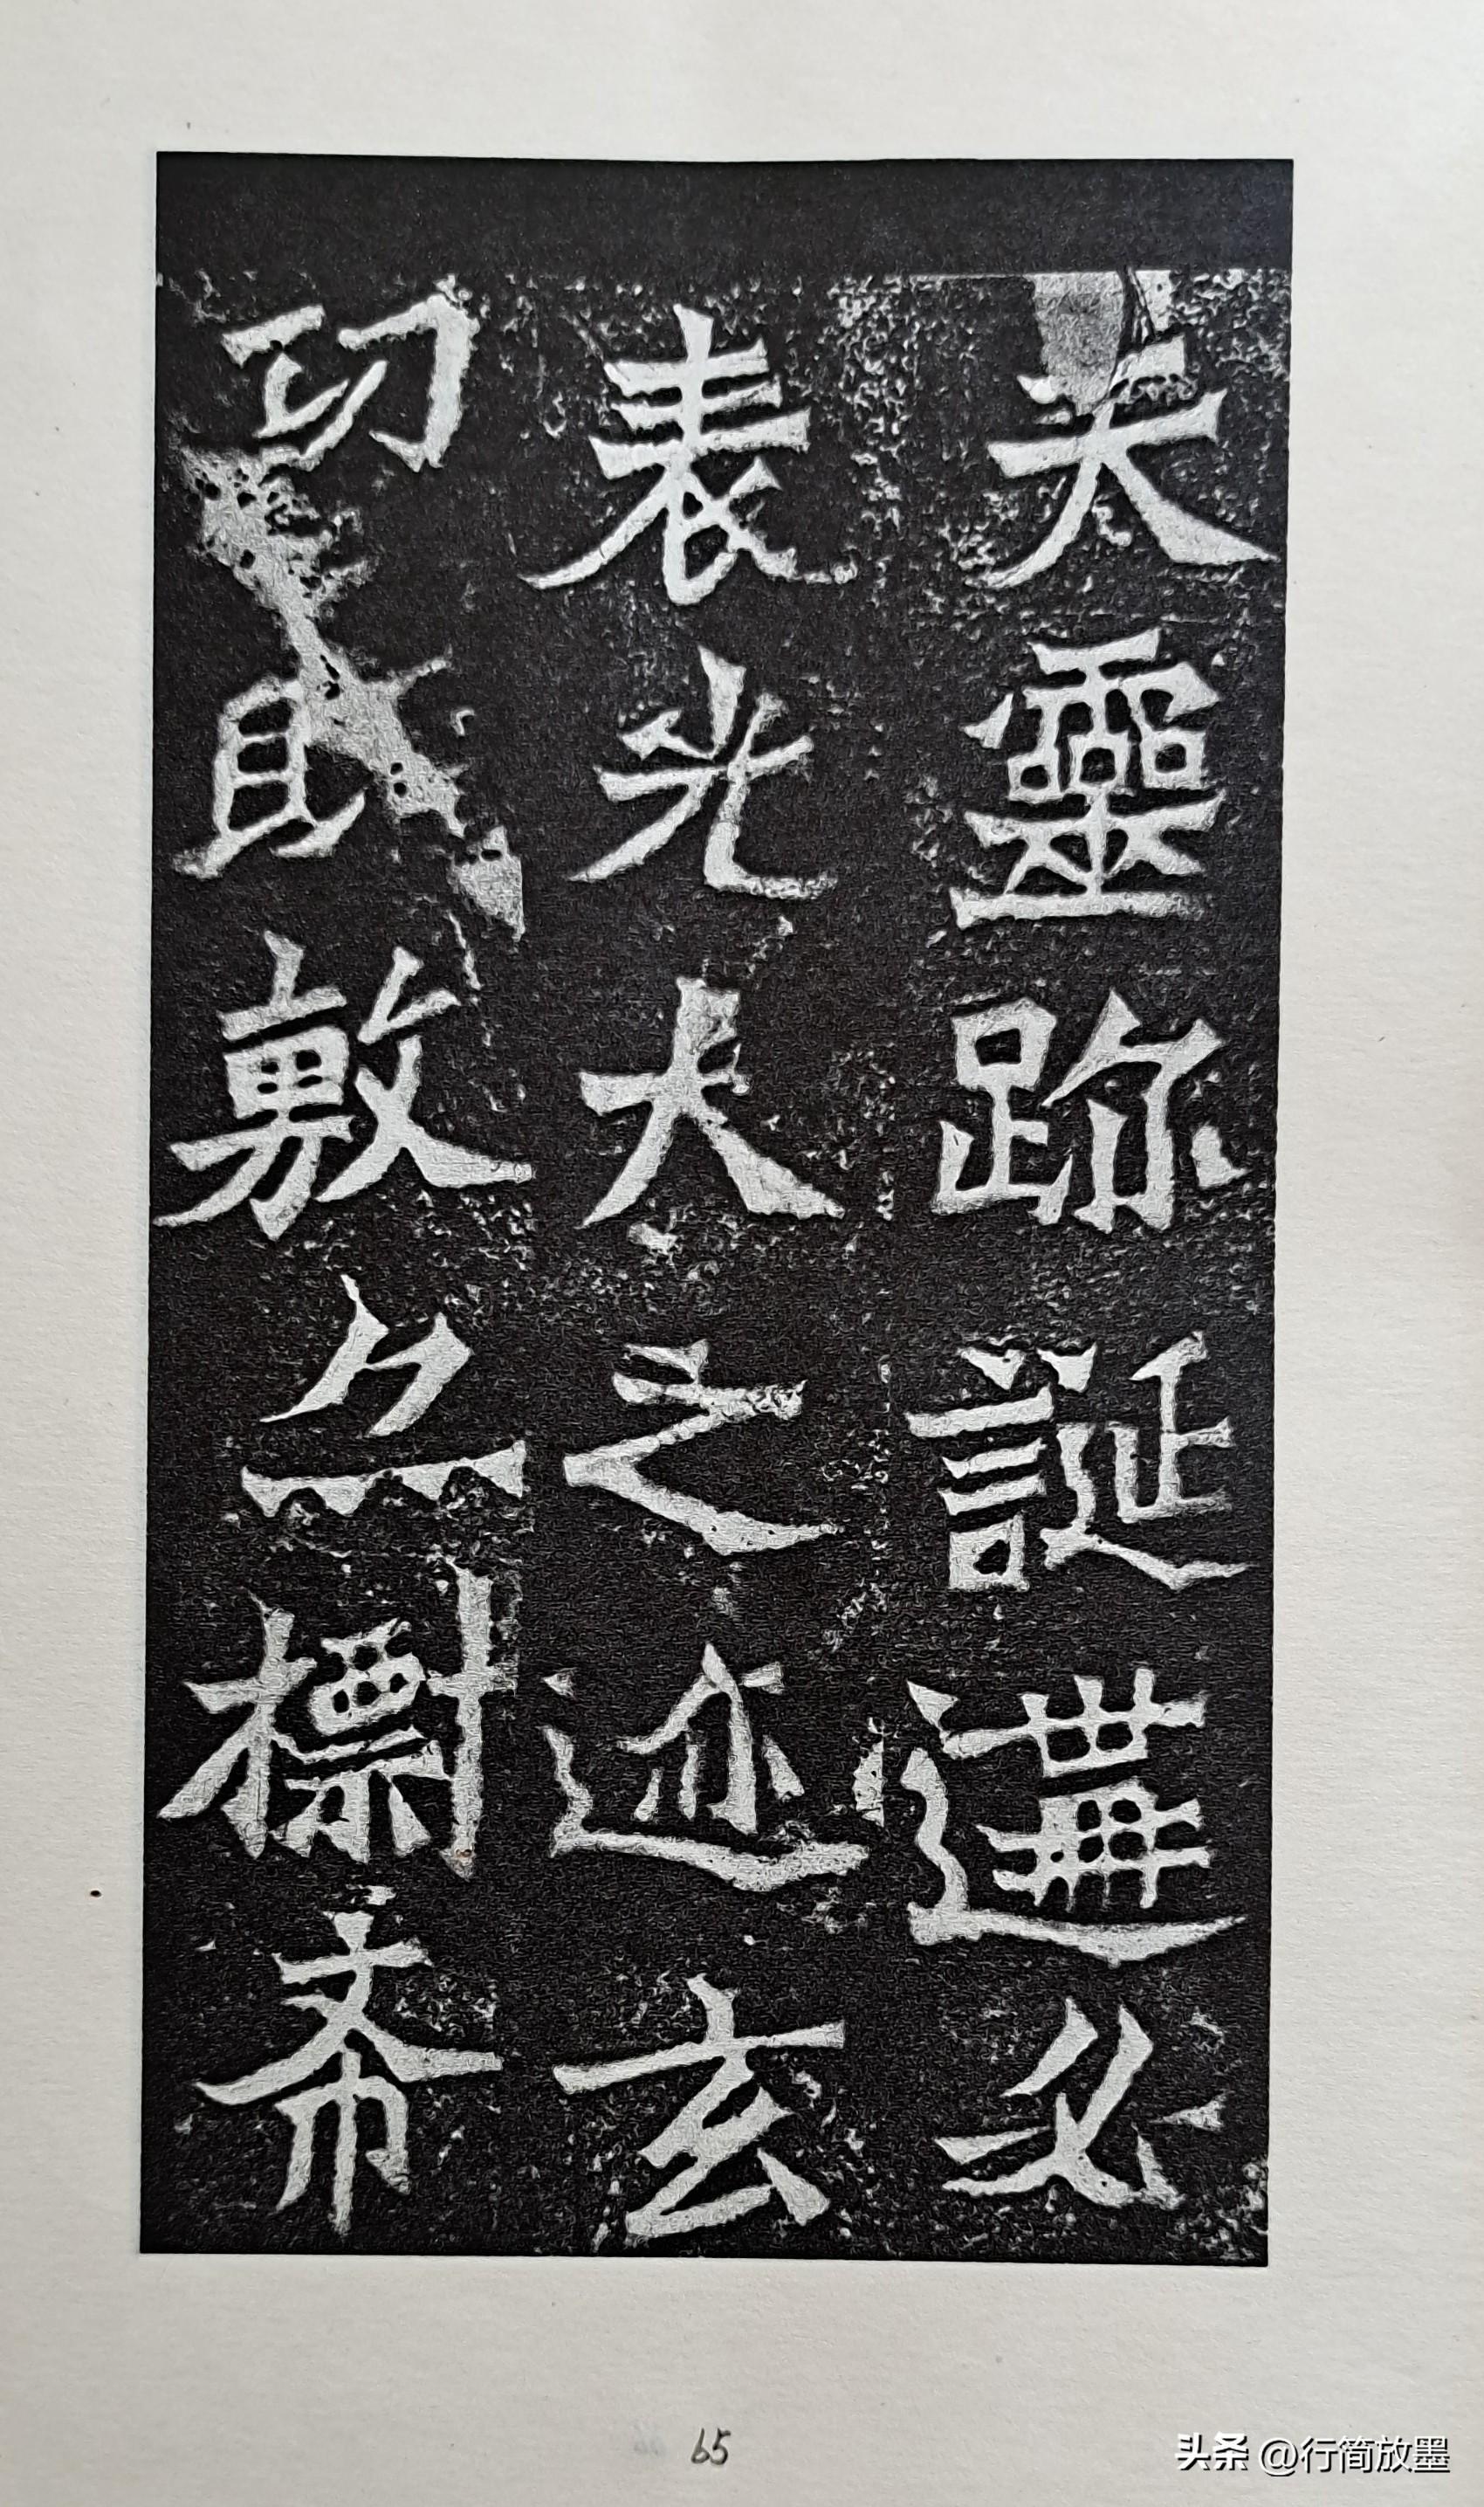 夫靈跡誕遘必
表光大之迹玄
功既敷亦標希
65
头条 @行简放墨